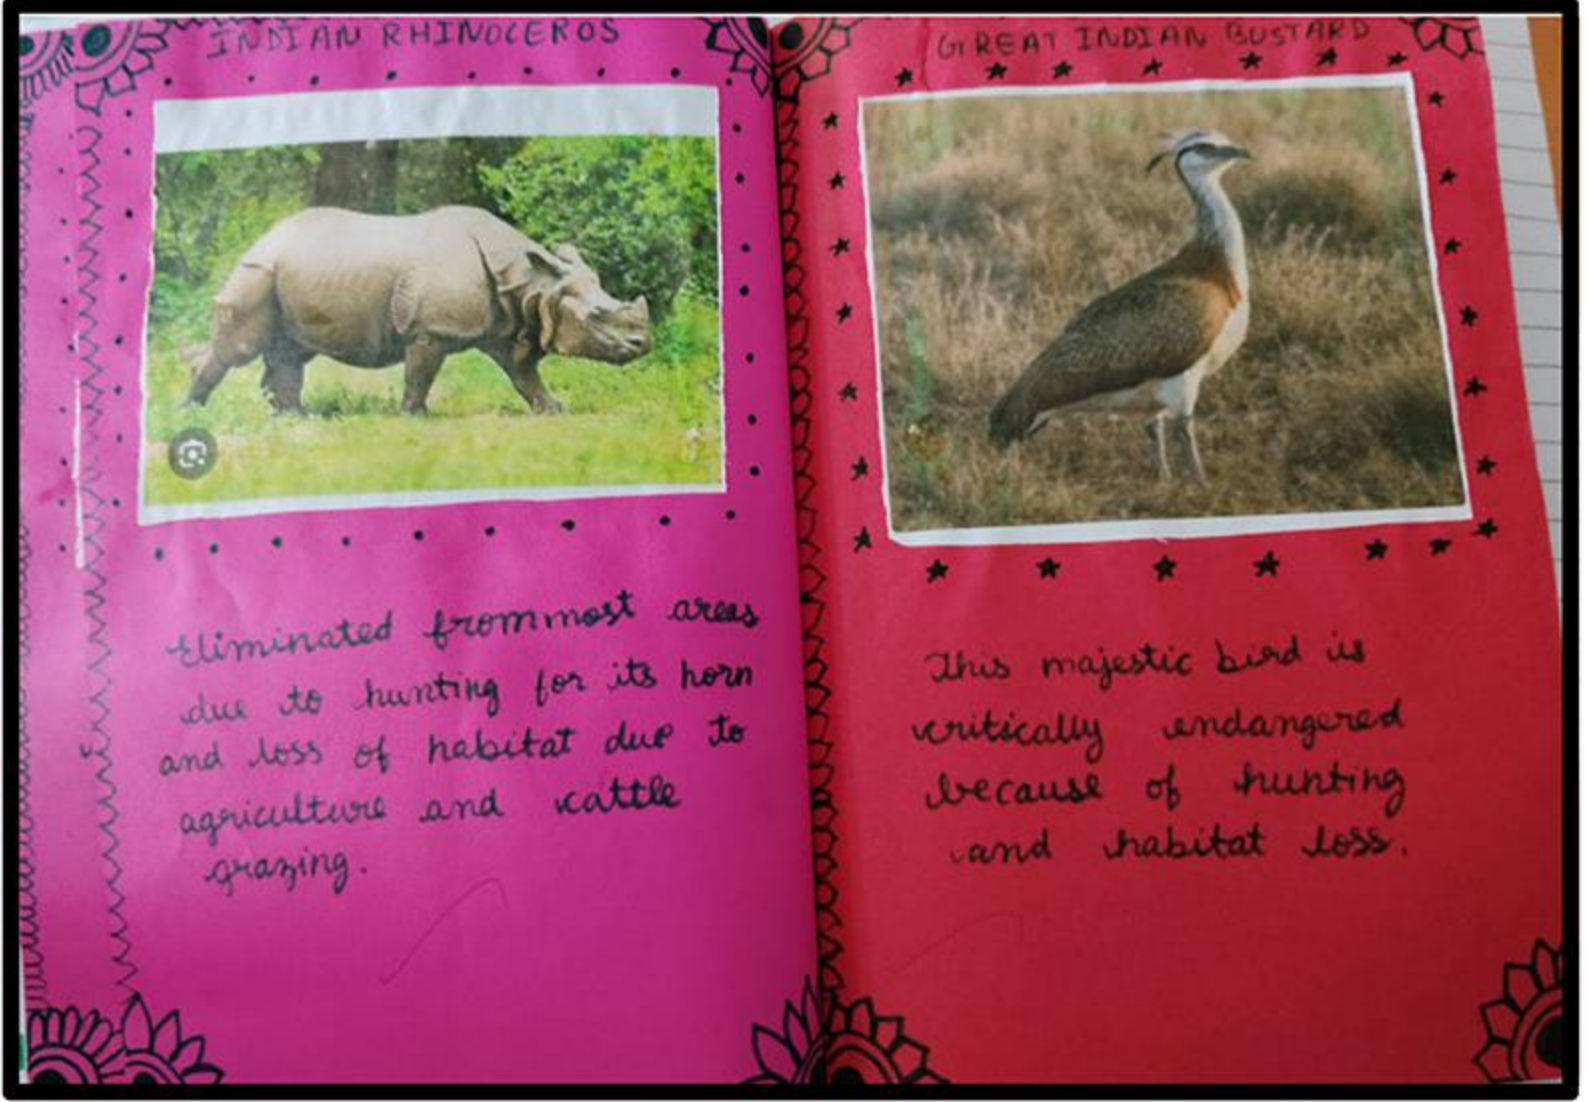 INDIAN RHINOCEROS
Eliminated from most areas
due to hunting for its horn
and loss of habitat due to
agriculture and cattle
grazing.
GREAT INDIAN BUSTARD
This majestic bird is
critically endangered
because of hunting
and habitat loss.